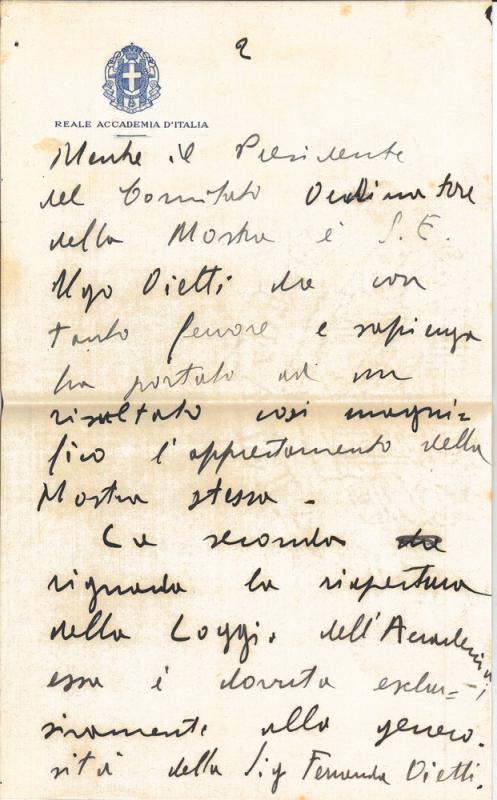 2
REALE ACCADEMIA D'ITALIA
Mentre il Presidente
del Comitato Ordinatore
della Mostra è S. E.
Ugo Ojetti che con
tanto fervore e sapienza
ha portato ad un
risultato così magni=
fico l'apprestamento della
Mostra stessa.
La seconda
riguarda la riapertura
della Loggia dell'Accademia;
essa è dovuta esclu=
sivamente alla genero.
sità della Sig Fernanda Ojetti.